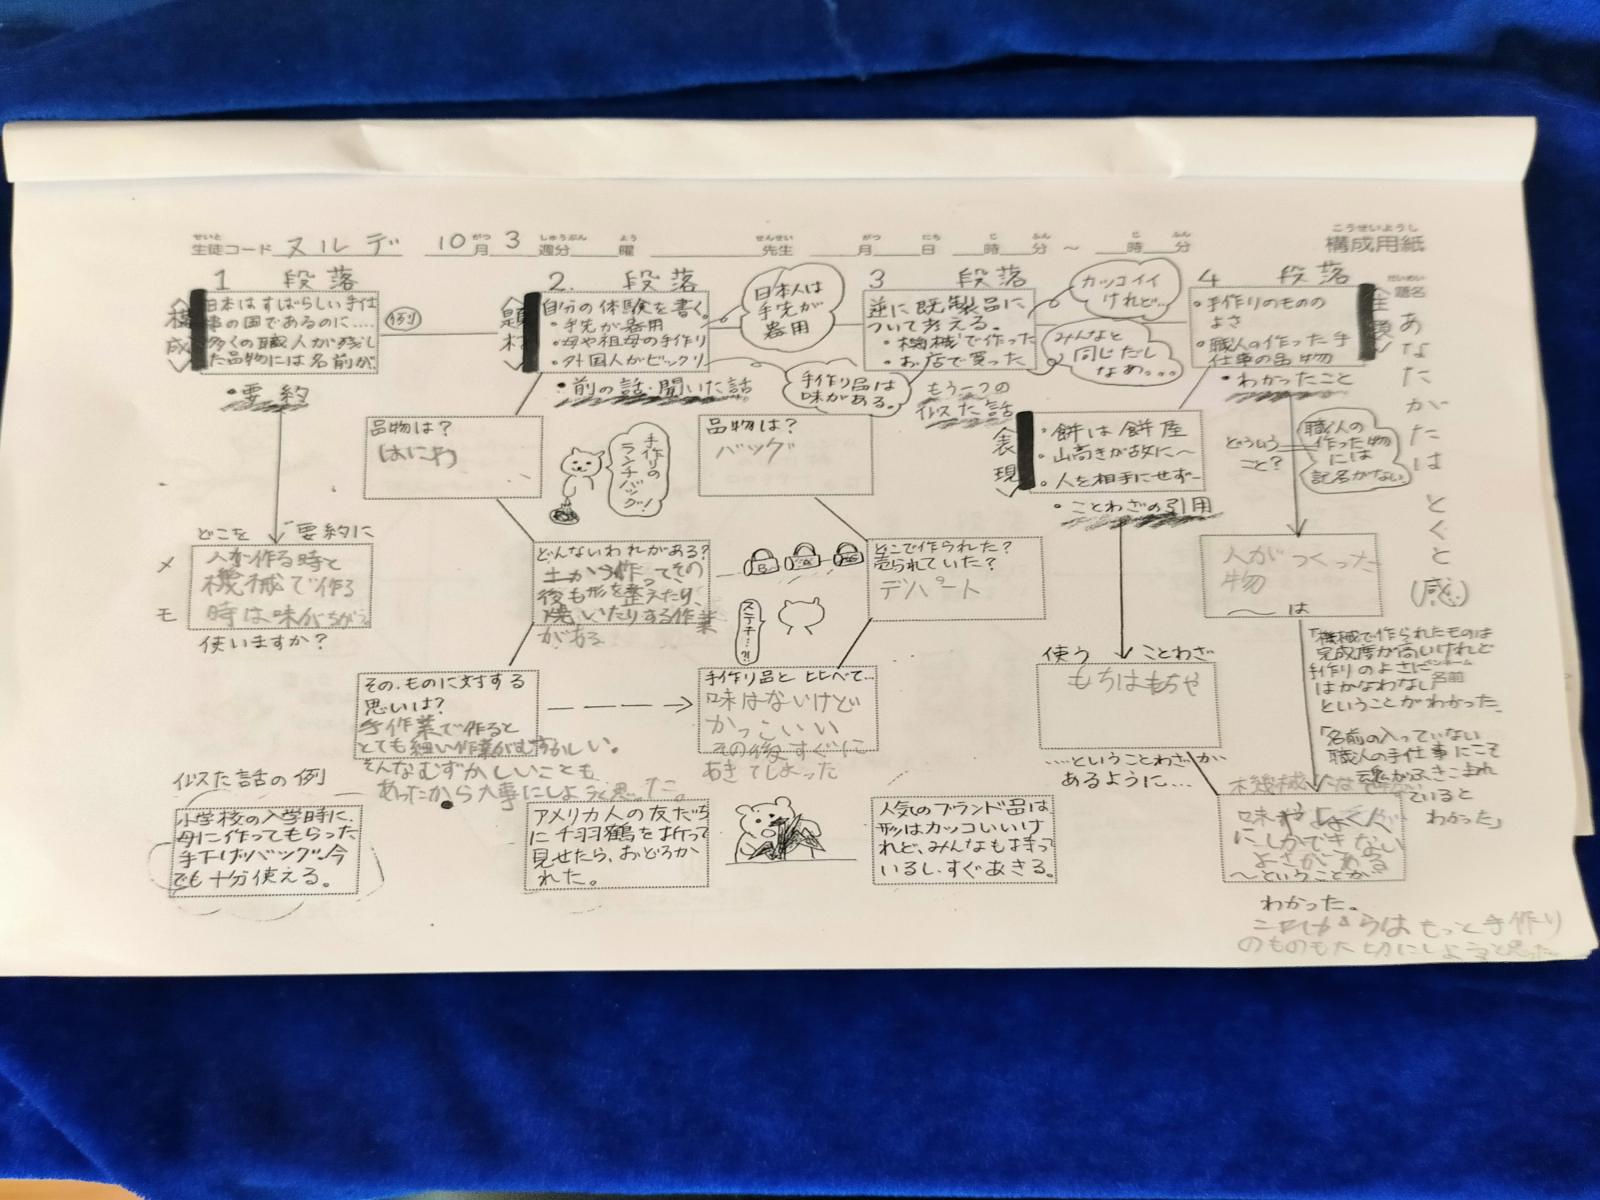 生徒コード ヌルデ 10月 3週分 曜 先生 月 日 時 分 ~ 時 分 構成用紙
1 段落
構成
日本はすばらしい手仕
事の国であるのに....
多くの職人が残し
た品物には名前が、
・要約
例
2. 段落
題材
自分の体験を書く。
・手先が器用
・母や祖母の手作り
・外国人がビックリ
・前の話・聞いた話
日本人は
手先が
器用
手作り品は
味がある。
3 段落
逆に既製品に
ついて考える。
・機械で作った
・お店で買った
もう一つの
似た話
カッコイイ
けれど…
みんなと
同じだし
なぁ。。。
4 段落
・手作りのものの
よさ
・職人の作った手
仕事の品物
・わかったこと
主題
題名
あなたがたはとくと
(感)
品物は?
はにわ
手作りの
ランチバッグ!
品物は?
バッグ
表現
・餅は餅屋
・山高きが故に〜
・人を相手にせず〜
・ことわざの引用
どういう
こと?
職人の
作った物
には
記名がない
どこを「要約に
メモ
人が作る時と
機械で作る
時は味がちがう。
使いますか?
どんないわれがある?
土から作ってその
後も形を整えたり、
焼いたりする作業
がある
ステキ…?!
どこで作られた?
売られていた?
デパート
人がつくった
物
〜は
「機械で作られたものは
完成度が高いけれど
手作りのよさに
はかなわない
ということがわかった。
「名前の入っていない
職人の手仕事にこそ
魂がふきこまれ
ていると
わかった」
その、ものに対する
思いは?
手作業で作ると
とても細い作業がむずかしい。
そんなむずかしいことも
あったから大事にしようと思った。
手作り品と比べて…
味はないけど
かっこいい
その後すぐに
あきてしまった
使う ことわざ
もちはもちや
....ということわざが
あるように…
似た話の例
小学校の入学時に、
母に作ってもらった
手下げバッグ、今
でも十分使える。
アメリカ人の友だち
に千羽鶴を折って
見せたら、おどろか
れた。
人気のブランド品は
形はカッコいいけ
れど、みんなも持って
いるし、すぐあきる。
にしかできない
よさがある
〜ということが
わかった。
これからはもっと手作り
のものも大切にしようと思った